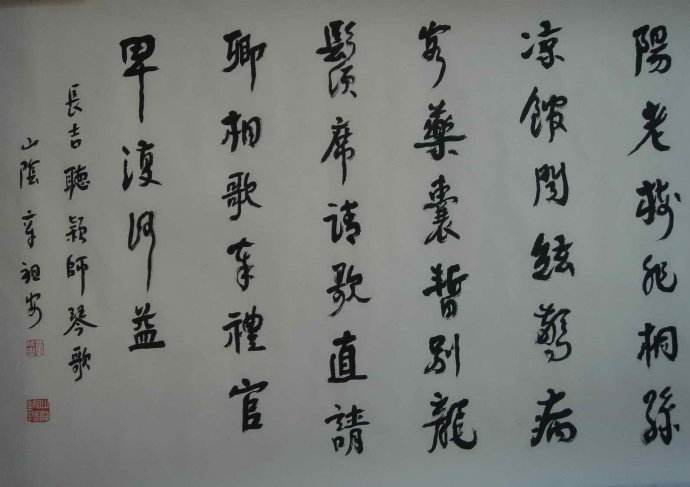 陽老樹非桐孫
凉館聞絃驚病
客藥囊暫別龍
鬚席請歌直請
卿相歌奉禮官
卑復何益
長吉聽穎師琴歌
山陰章祖安